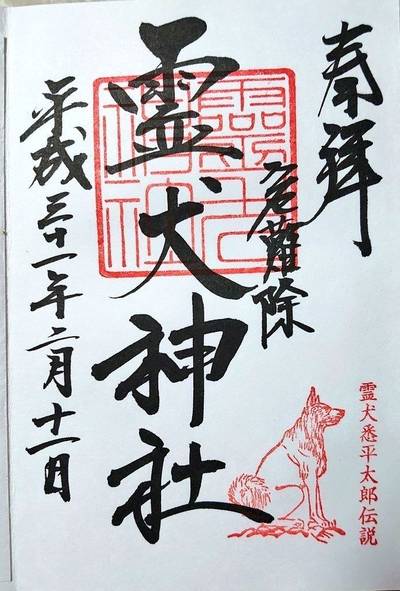 奉拝
厄難除
霊犬神社
平成三十一年二月十一日
霊犬悉平太郎伝説